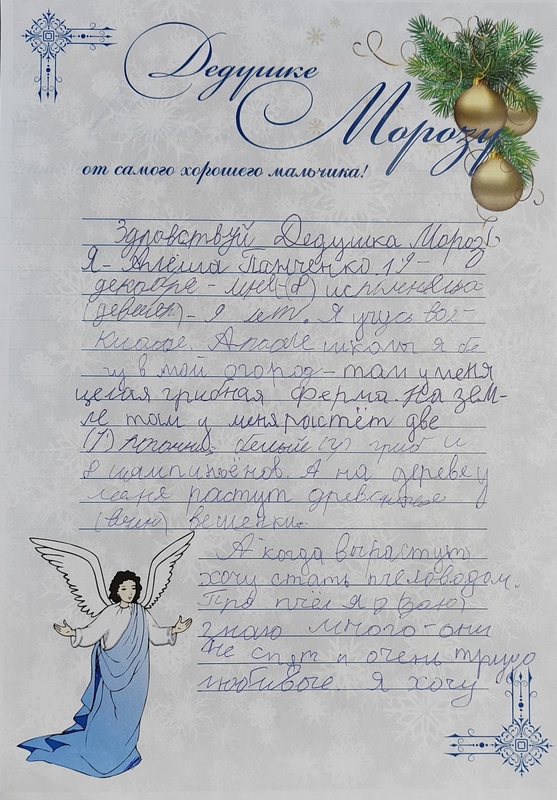 Дедушке
Морозу
от самого хорошего мальчика!
Здравствуй Дедушка Мороз
Я - Алёша Панченко 19-
декабре - мне (8) исполнилось
- 9 лет. Я учусь во 2-
классе. А после школы я б
гу в мой огород - там у меня
целая грибная ферма. На зем-
ле там у меня растёт две
(7) белый гриб и
8 шампиньонов. А на дереве у
меня растут
вешенки.
А когда вырасту
хочу стать пчеловодом.
Про пчёл я
знаю много - они
не спят и очень трудо
любивые. Я хочу